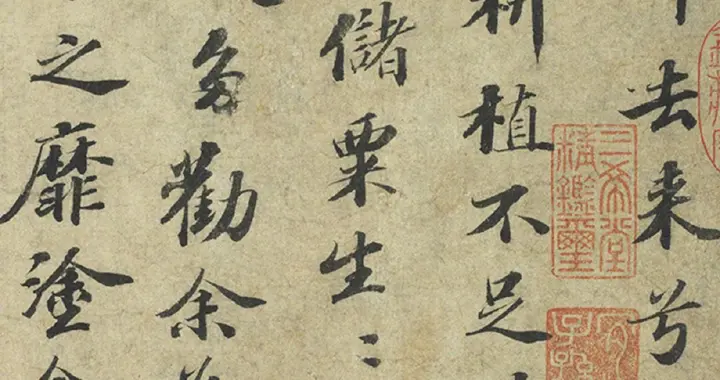 去来兮
三希堂
精鑑璽
耕植不足
儲粟生〻
多勸余
之靡塗